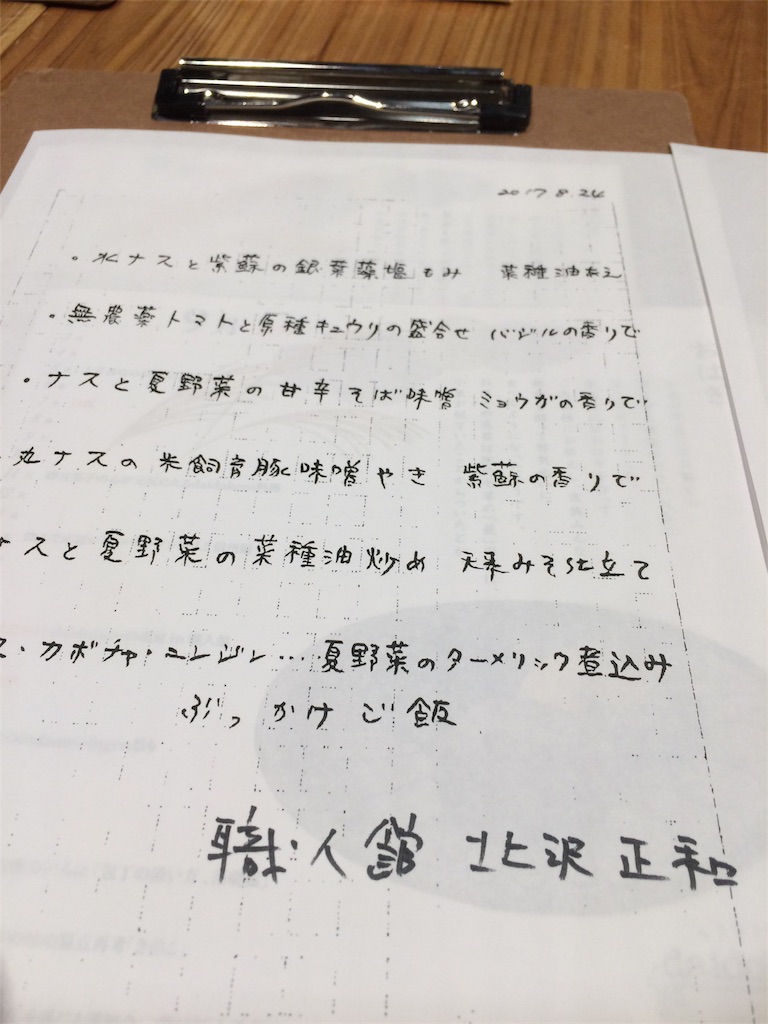 2017 8.24
・水ナスと紫蘇の銀葉藻塩もみ 菜種油和え
・無農薬トマトと原種キュウリの盛合せ バジルの香りで
・ナスと夏野菜の甘辛そば味噌 ミョウガの香りで
丸ナスの米飼育豚味噌やき 紫蘇の香りで
ナスと夏野菜の菜種油炒め みそ仕立て
ス・カボチャ・ニンジン…夏野菜のターメリック煮込み
ぶっかけご飯
職人館 北沢正和